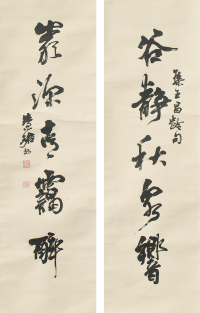 谷靜秋泉響
集王昌齡句
巖深青靄殘